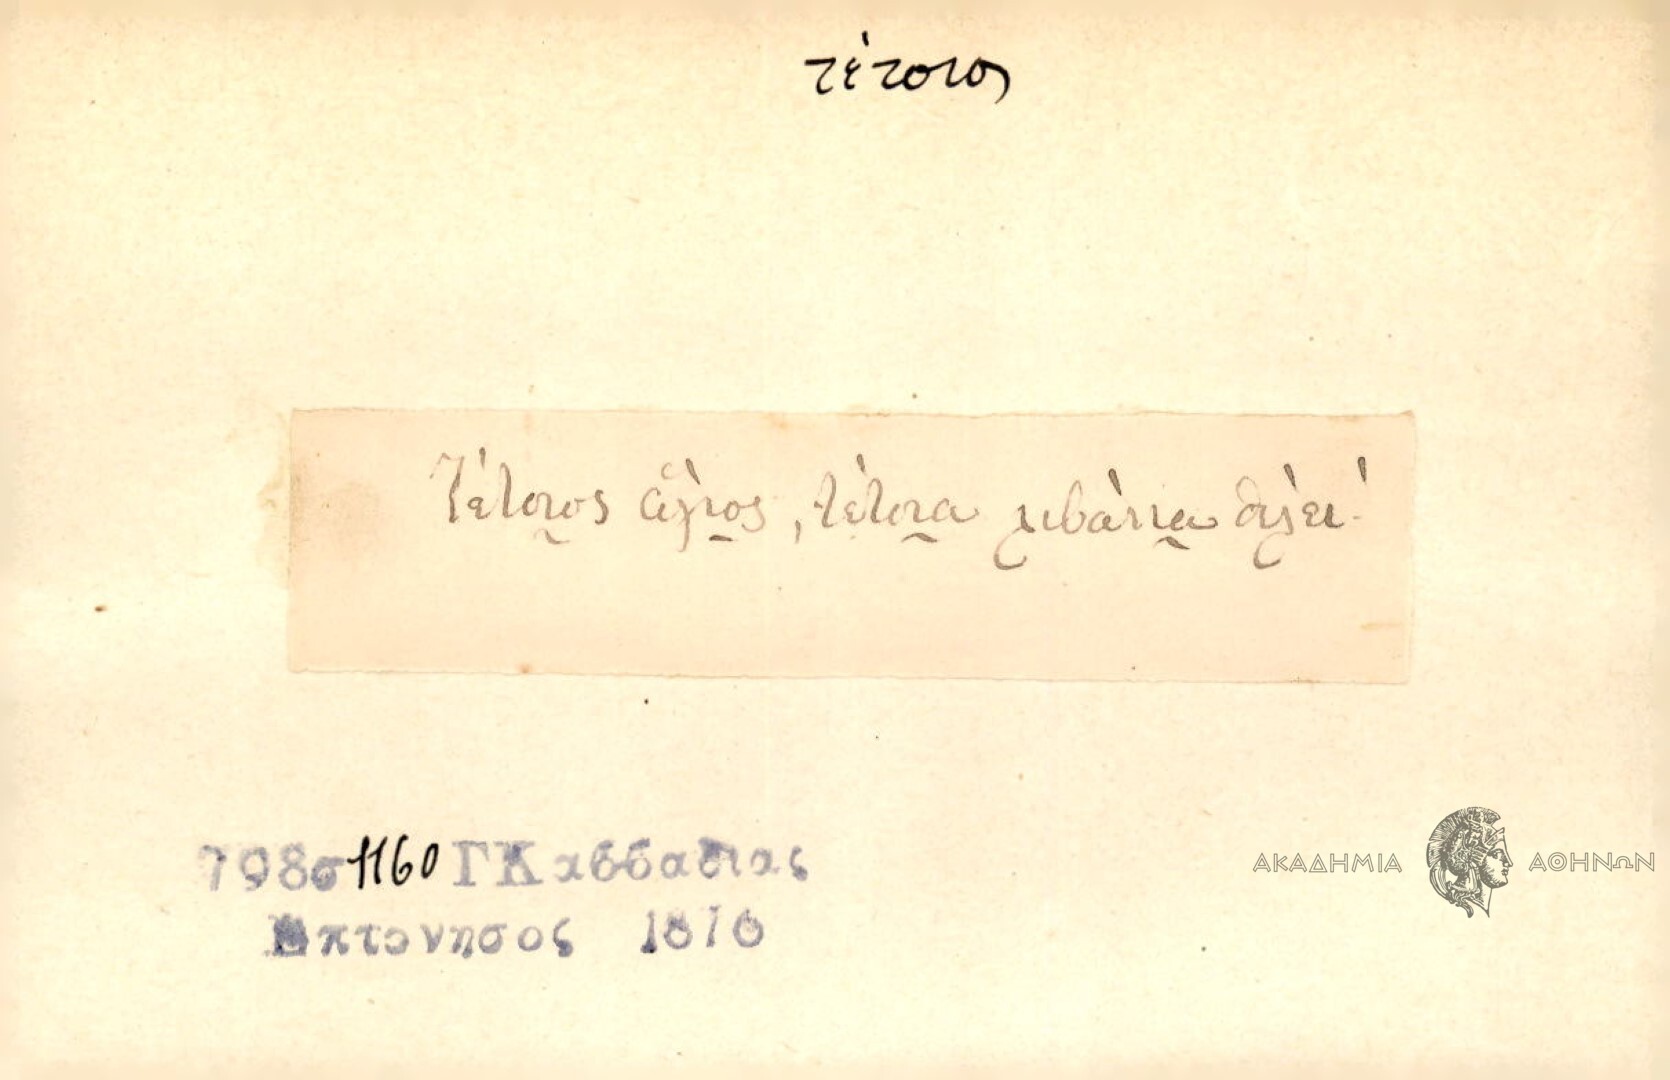 τέτοιος
Τέτοιος ἅγιος, τέτοια λιβάνια θέλει.
798σ1160 ΓΚαββαδιας
Επτονησος 1876
ΑΚΑΔΗΜΙΑ ΑΘΗΝΩΝ